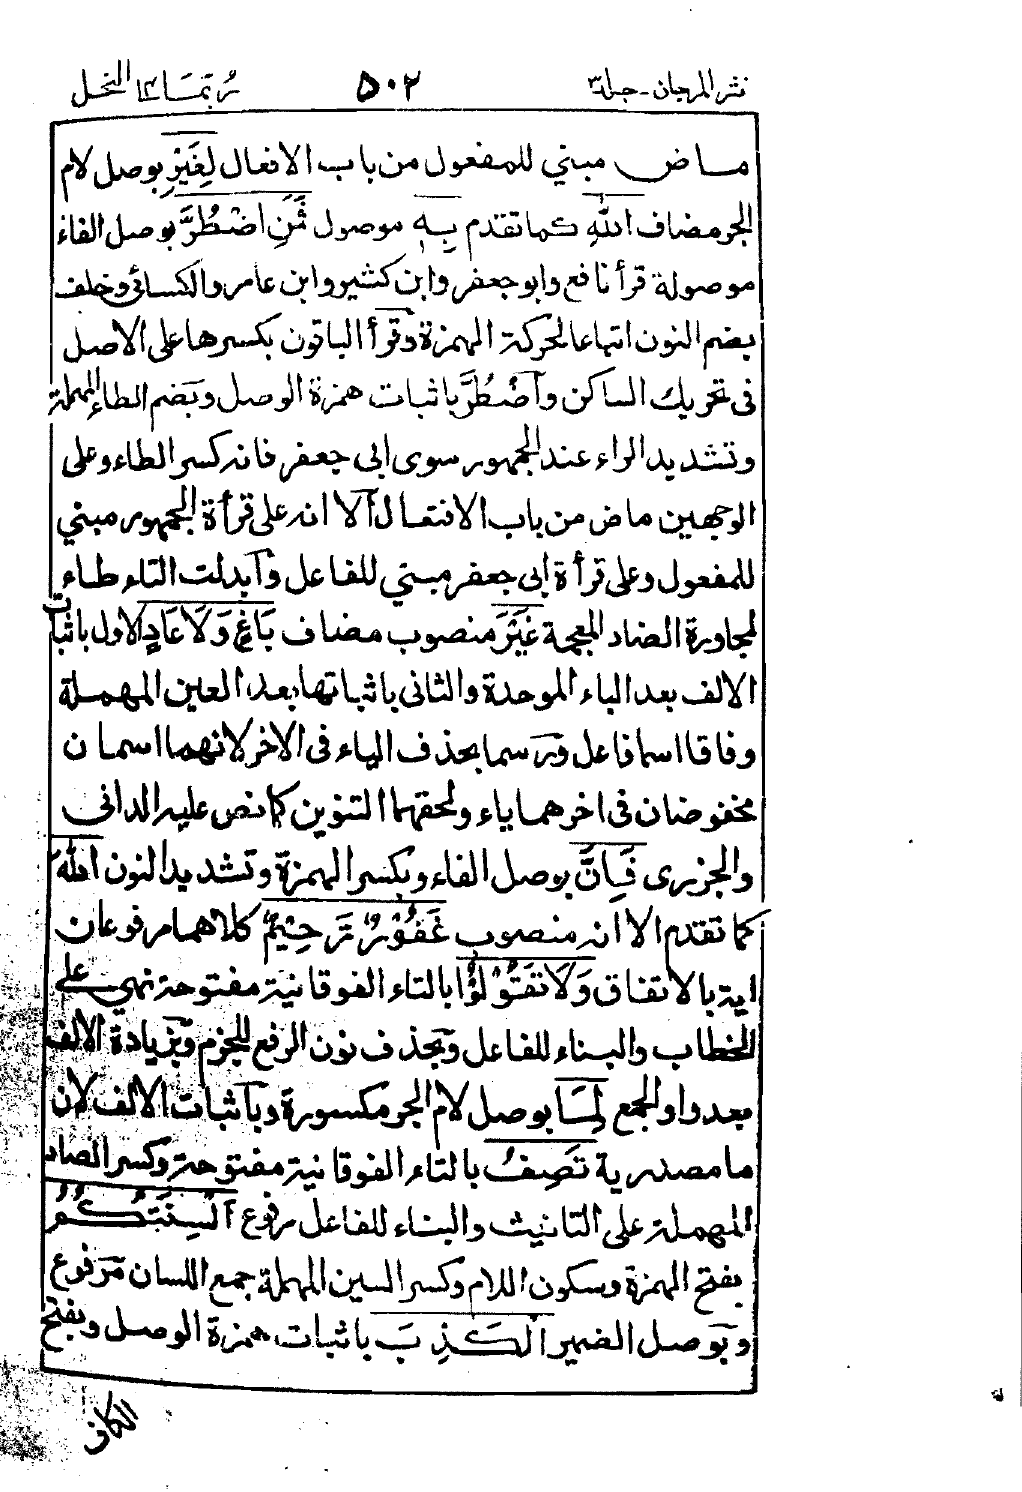 نثر المرجان - جلد ٣ ٥٠٢ ربما ١٤ النحل
ماض مبني للمفعول من باب الافعال لِغَيْرِ بوصل لام
الجر مضاف اللهِ كما تقدم بِهٖ موصول فَمَنِ اضْطُرَّ بوصل الفاء
موصولة قرأ نافع وابو جعفر وابن كثير وابن عامر والكسائي وخلف
بضم النون اتباعا لحركة الهمزة وقرأ الباقون بكسرها على الاصل
في تحريك الساكن واضْطُرَّ باثبات همزة الوصل وبضم الطاء المهملة
وتشديد الراء عند الجمهور سوى ابي جعفر فانه كسر الطاء وعلى
الوجهين ماض من باب الافتعال الا انه على قرأة الجمهور مبني
للمفعول وعلى قرأة ابي جعفر مبني للفاعل وابدلت التاء طاء
لمجاورة الضاد المعجمة غَيْرَ منصوب مضاف بَاغٍ وَلَا عَادٍ الاول باثبات
الالف بعد الباء الموحدة والثاني باثباتها بعد العين المهملة
وفاقا اسما فاعل ورسما بحذف الياء في الاخر لانهما اسمان
مخفوضان في اخرهما ياء ولحقهما التنوين كما نص عليه الداني
والجزري فَاِنَّ بوصل الفاء وبكسر الهمزة وتشديد النون اللهَ
كما تقدم الا انه منصوب غَفُوْرٌ رَّحِيْمٌ كلاهما مرفوعان
اية بالاتفاق وَلَا تَقُوْلُوْا بالتاء الفوقانية مفتوحة نهي على
الخطاب والبناء للفاعل وبحذف نون الرفع للجزم وبزيادة الالف
بعد واو الجمع لِمَا بوصل لام الجر مكسورة وباثبات الالف لان
ما مصدرية تَصِفُ بالتاء الفوقانية مفتوحة وكسر الصاد
المهملة على التانيث والبناء للفاعل مرفوع اَلْسِنَتُكُمُ
بفتح الهمزة وسكون اللام وكسر السين المهملة جمع اللسان مرفوع
وبوصل الضمير الْكَذِبَ باثبات همزة الوصل وبفتح
الكاف